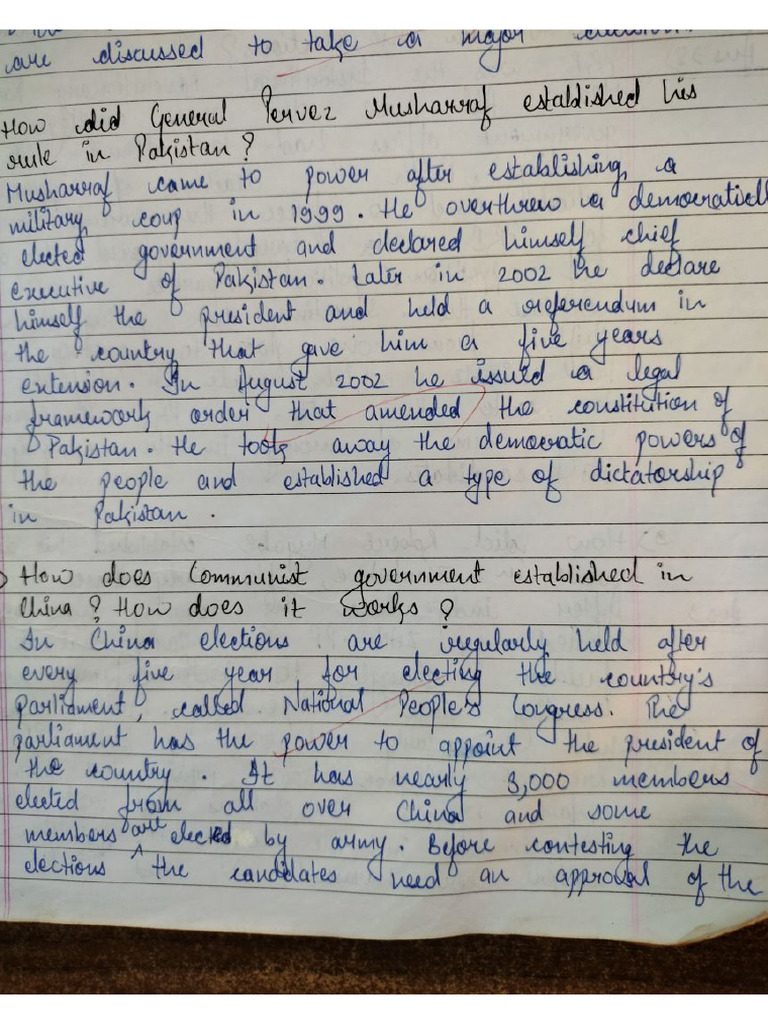 are discussed to take a major
How did General Pervez Musharraf established his
rule in Pakistan ?
Musharraf came to power after establishing a
military coup in 1999. He overthrew a democratically
elected government and declared himself chief
executive of Pakistan. Later in 2002 he declare
himself the president and held a referendum in
the country that gave him a five years
extension. In August 2002 he issued a legal
framework order that amended the constitution of
Pakistan. He took away the democratic powers of
the people and established a type of dictatorship
in Pakistan .
How does Communist government established in
China ? How does it works ?
In China elections are iregularly held after
every five year for electing the country's
parliament, called National People's Congress. The
parliament has the power to appoint the president of
the country. It has nearly 3,000 members
elected from all over China and some
members are elected by army. Before contesting the
elections the candidates need an approval of the